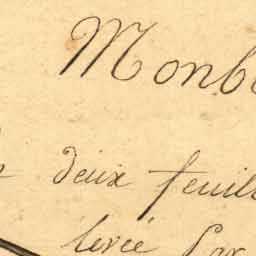 Monb
deux feuill
levée Par